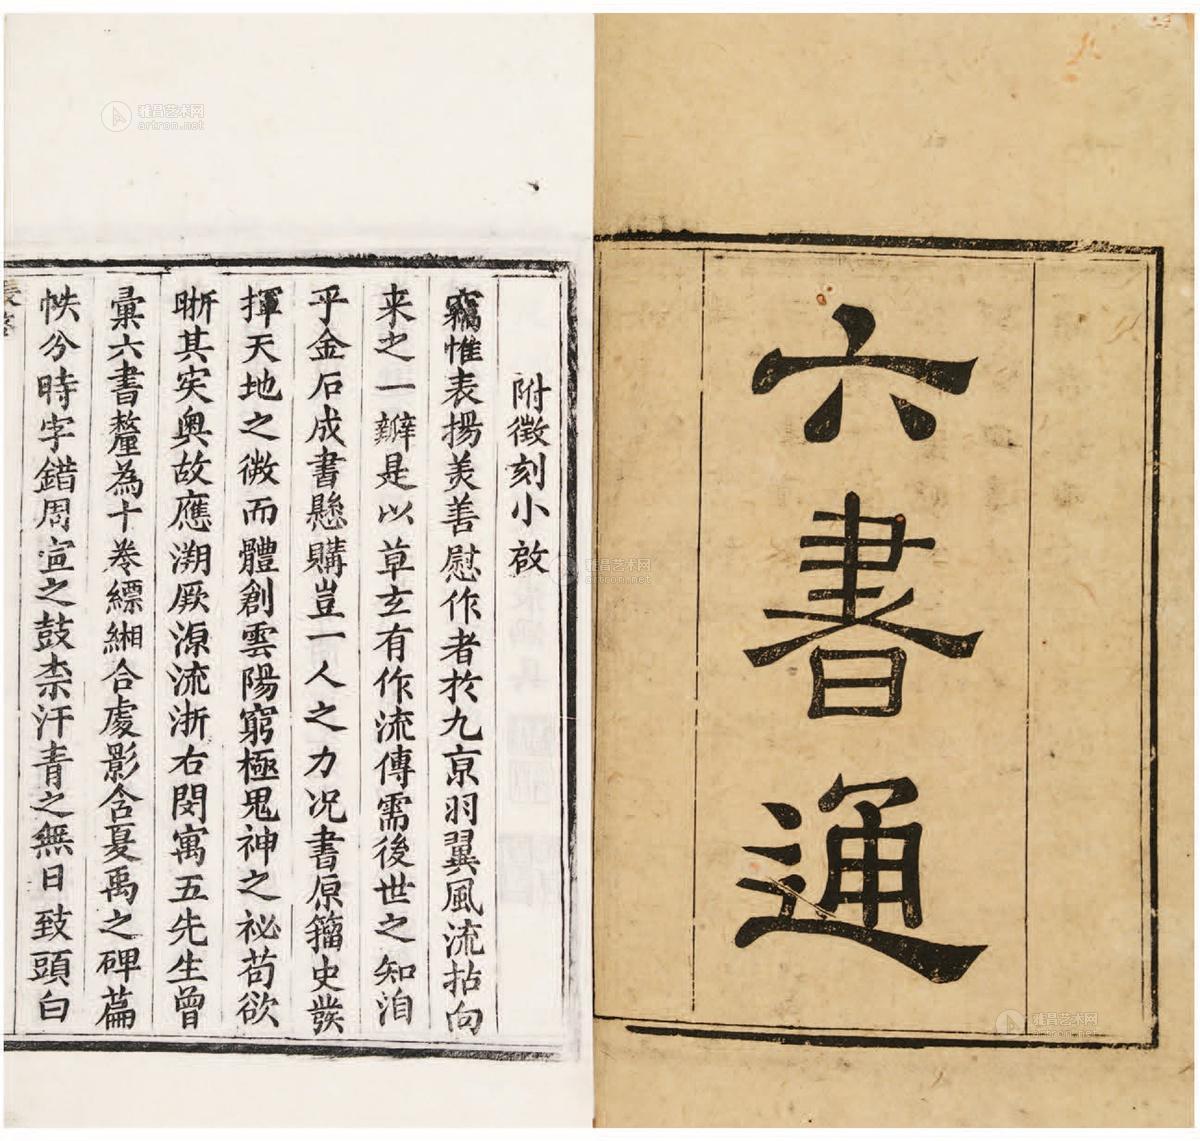 六書通
附徵刻小啟
竊惟表揚美善慰作者於九京羽翼風流拈向
来之一辦是以草玄有作流傳需後世之知洎
乎金石成書懸購豈一人之力况書原籀史發
揮天地之微而體創雲陽窮極鬼神之祕苟欲
晣其突奥故應溯厥源流浙右閔寓五先生曾
彙六書釐為十卷縹緗合處影含夏禹之碑篇
帙分時字錯周宣之鼓柰汗青之無日致頭白
雅昌艺术网
artron.net
雅昌艺术网
artron.net
雅昌艺术网
artron.net